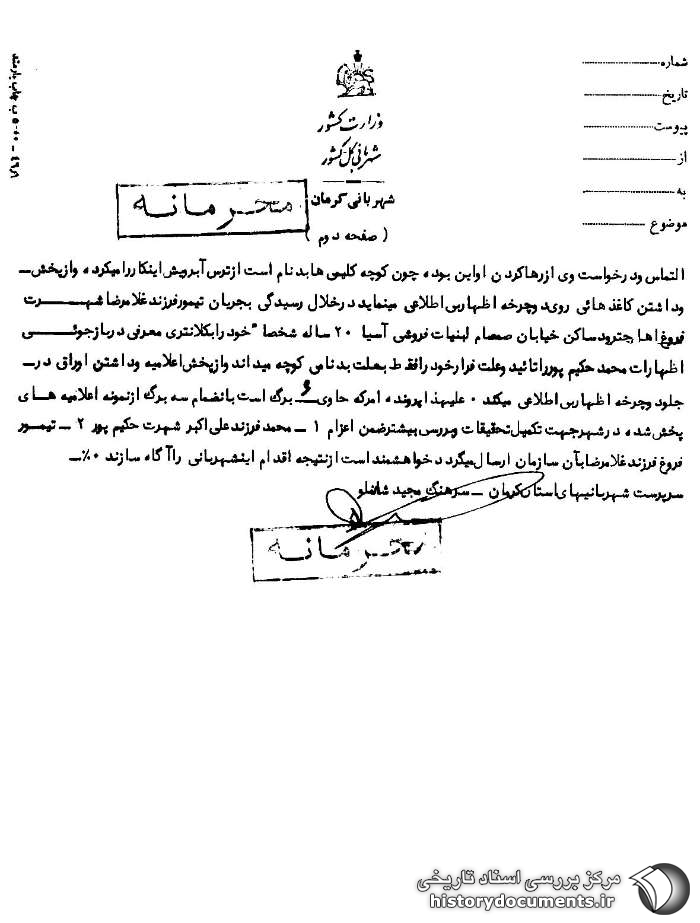 شماره
تاریخ
پیوست
از
به
موضوع
وزارت کشور
شهربانی کل کشور
شهربانی کرمان
محرمانه
( صفحه دوم )
التماس ودرخواست وی ازرهاکردن اواین بوده چون کوچه کلیمی هابدنام است ازترس آبرویش اینکاررامیکرده وازپخش ـ
وداشتن کاغذهائی روی دوچرخه اظهاربی اطلاعی مینماید درخلال رسیدگی بجریان تیمورفرزندغلامرضا شهـــرت
فروغ اهل جترودساکن خیابان صمصام لبنیات فروشی آسیا ۲۰ ساله شخصا" خودرابکلانتری معرفی دربازجوئـــی
اظهارات محمد حکیم پورراتائیدوعلت فرارخودرافقط بعلت بدنامی کوچه میداندوازپخش اعلامیه وداشتن اوراق درـ
جلودوچرخه اظهاربی اطلاعی میکند ۰ علیهذاپرونده امرکه حاوی ۶ برگ است بانضمام سه برگ ازنمونه اعلامیه های
پخش شده درشهرجهت تکمیل تحقیقات وبررسی بیشترضمن اعزام ۱ ـ محمدفرزندعلی اکبر شهرت حکیم پور ۲ ـ تیمـور
فروغ فرزندغلامرضابآن سازمان ارسال میگردد خواهشمنداست ازنتیجه اقدام اینشهربانی راآگاه سازند ۰٪ـ
سرپرست شهربانیهای استان کرمان ـ سرهنگ مجید شاملو
محرمانه
مرکز بررسی اسناد تاریخی
historydocuments.ir